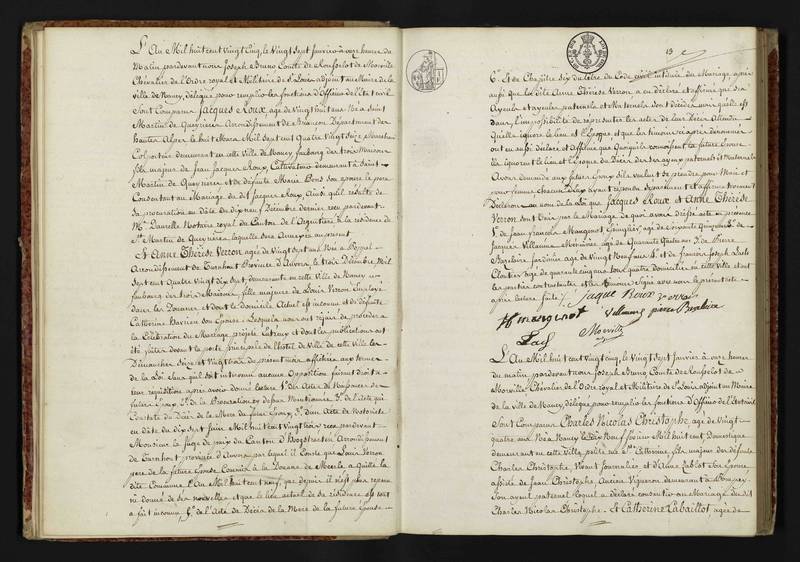 L'An Mil huit cent vingt cinq, le Vingt sept Janvier à onze heures du
Matin, pardevant nous Joseph Bruno Comte de Ranfselot de Morville
Chevalier de l'Ordre royal et Militaire de St Louis adjoint au Maire de la
Ville de Nancy, délégué pour remplir les fonctions d'Officier de l'Etat civil
Sont Comparus Jacques Roux, agé de vingt huit ans Né à Saint
Martin de Queyrieres Arrondissement de Briançon Département des
hautes Alpes le huit Mars Mil Sept cent Quatre vingt seize, Marchand
Colporteur demeurant en cette Ville de Nancy faubourg des trois Maisons
fils majeur de Jean Jacques Roux, Cultivateur demeurant à Saint
Martin de Queyrieres et de défunte Marie Bens son épouse le père
Consentant au Mariage du dit Jacques Roux, Ainsi qu'il résulte de
sa procuration en date du dix neuf Décembre dernier recu pardevant
Me Daurelle Notaire royal du Canton de l'Argentiere à la résidence de
St Martin de Queyrieres, laquelle sera Annexée au présent
Et Anne Thérèse Verron agée de Vingt sept ans Née à Poppel
Arrondissement de Turnhout Province d'Anvers, le trois Décembre Mil
Sept cent Quatre vingt dix sept demeurante en cette Ville de Nancy
faubourg des trois Maisons, fille majeure de Louis Verron Employé
dans les Douanes et dont le domicile Actuel est inconnu et de défunte
Catherine son Epouse. Lesquels nous ont requis de procéder à
la Célébration du Mariage projeté entr'eux et dont les publications ont
été faites devant la porte principale de l'hôtel de Ville de cette ville les
Dimanches Seize et Vingt trois du présent mois affichées aux termes
de la Loi Sans qu'il soit intervenu aucune Opposition faisant droit à
leur requisition après avoir donné lecture 1° des Actes de Naissances des
futurs Epoux, 2° de la Procuration cy dessus Mentionnée 3° de l'acte qui
Constate du Décès de la Mere du futur Epoux, 3° d'un Acte de Notoriété
en date du dix sept Juin Mil huit cent Vingt trois recu pardevant
Monsieur le Juge de paix du Canton d'Hoogstraeten Arrondissement
de Turnhout province d'Anvers par lequel il Conste que Louis Verron
pere de la future Epouse à la Douane de Meerle a Quitté la
dite Commune l'An Mil huit cent neuf que depuis il n'est plus revenu
ni donné de ses nouvelles et que le lieu actuel de sa résidence est tout
a fait inconnu, 4° de l'Acte de Décès de la Mere de la future Epouse
13
6. Et du Chapitre Six du titre du Code Civil intitulé du Mariage après
aussi que la Dlle Anne Thérèse Verron a eu déclaré et affirmé que ses
Ayeuls et ayeules paternels et Maternels sont décédés mais qu'elle est
dans l'impossibilité de représenter les actes de leurs Décès Attendu
Qu'elle ignore le lieu et l'Epoque et que les témoins cy après dénommés
ont eu aussi déclaré et Affirmé que Quoiqu'ils connoissent la future Epouse
ils ignorent le lieu et l'Epoque du Décès de ses ayeux paternels et Maternels
Avons demandé aux futurs Epoux s'ils veulent se prendre pour Mari et
pour femme chacun d'eux ayant répondu séparément et affirmativement
Déclarons au nom de la Loi que Jacques Roux et Anne Thérèse
Verron sont Unis par le Mariage de quoi avons dressé acte en présence
1° de Jean francois Manginot agé de Cinquante Cinq ans 2° de
Jacques Villaume Menuisier agé de Quarante Quatre ans 3° de Pierre
Bastien Jardinier agé de vingt neuf ans & 4° de francois Joseph
Cloutier agé de quarante cinq ans tous quatre domiciliés en cette Ville et ont
les parties contractantes et les témoins Signé avec nous le présent acte
après lecture faite /. Jaque Roux verron
H manginot Villaume pierre Bastien
Morville
L'An Mil huit cent vingt Cinq, Vingt sept Janvier à onze heures
du matin, pardevant nous Joseph Bruno, Comte de Ranfselot de
Morville Chevalier de l'Ordre royal et Militaire de St Louis, adjoint au Maire
de la ville de Nancy, délégué pour remplir les fonctions d'Officier de l'Etat civil
Sont Comparus Charles Nicolas Christophe, agé de Vingt
quatre ans Né à Nancy le Dix Neuf Mil huit cent Domestique
demeurant en cette Ville, petite rue Ste Catherine, fils majeur des défunts
Charles Christophe, Vivant Journalier, et d'Anne Lablot Son Epouse
assisté de Jean Christophe, Ancien Vigneron demeurant à Pompey
Son ayeul paternel lequel a déclaré consentir au Mariage du dit
Charles Nicolas Christophe. Et Catherine Labaillot, agée de